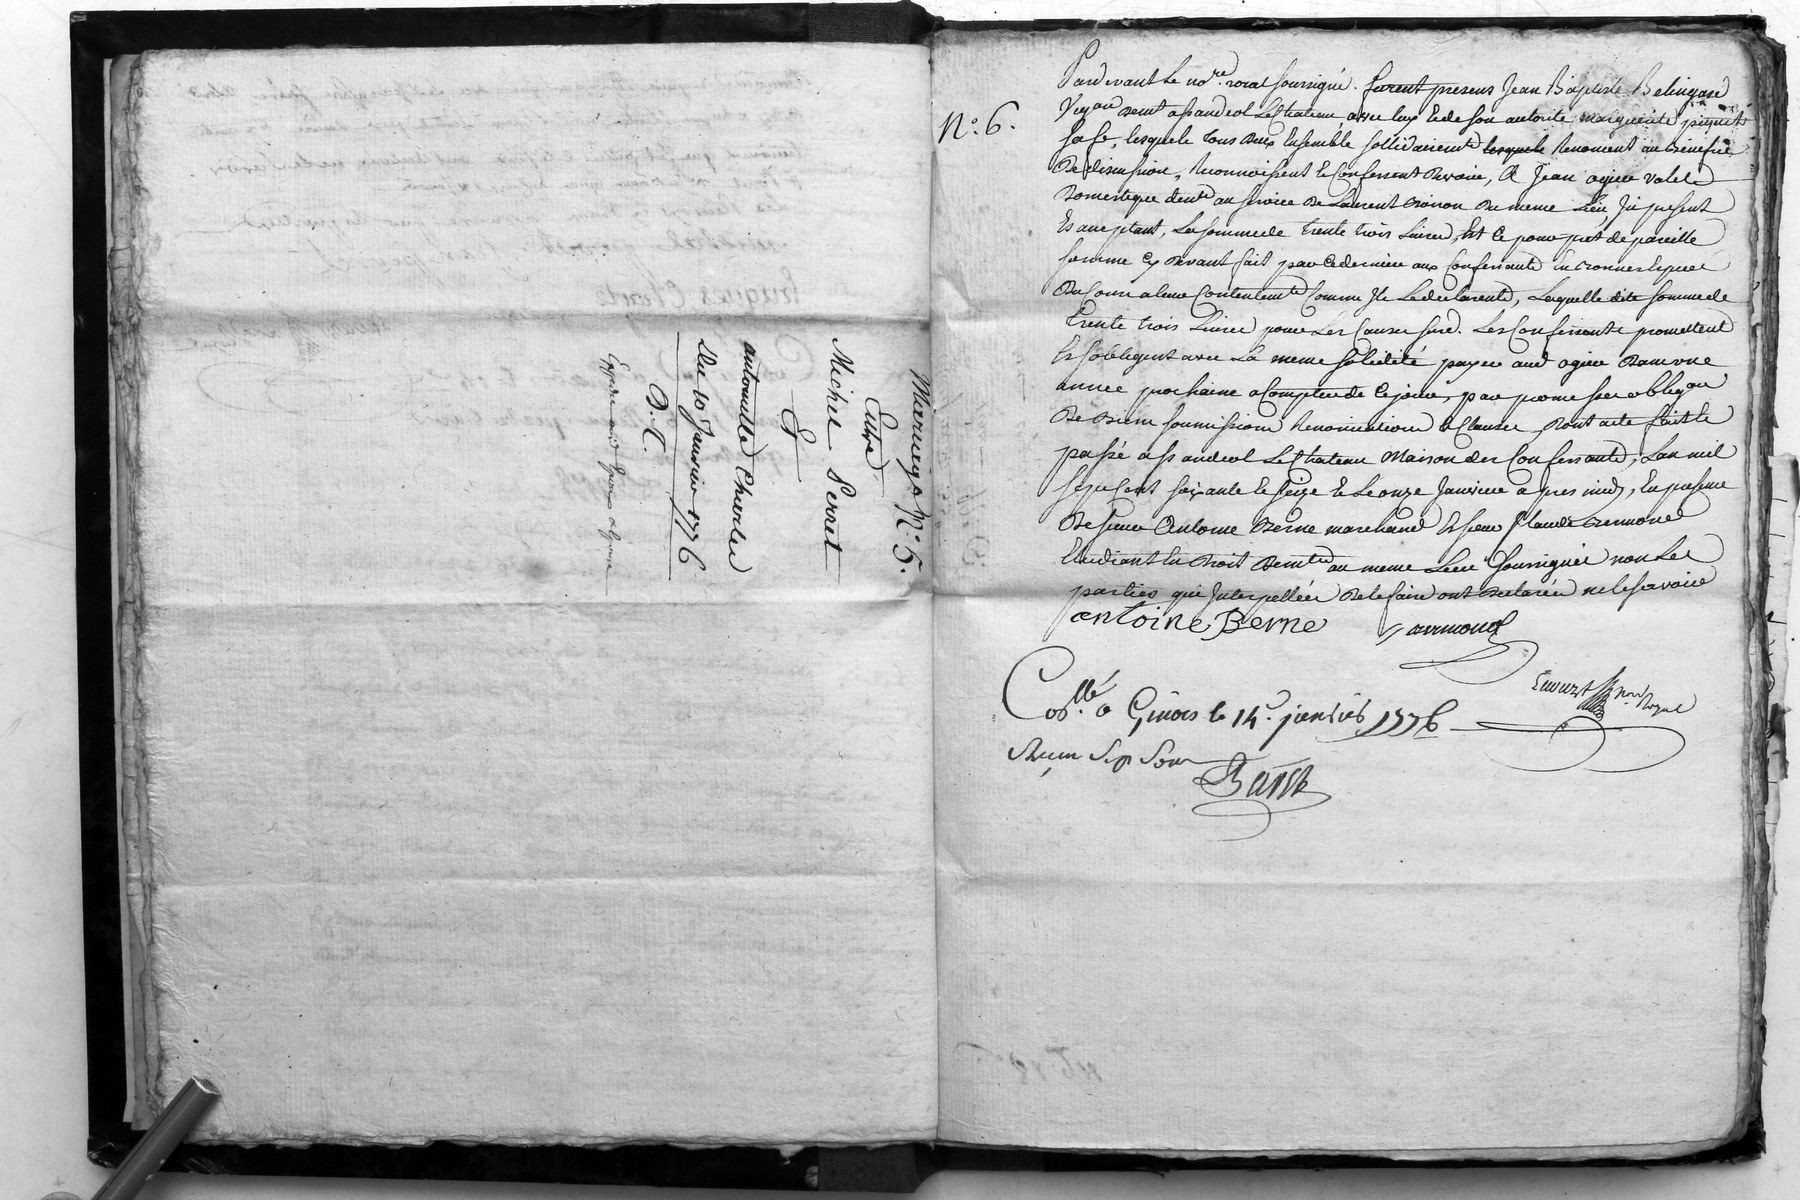 Mariage N.° 5.
Entre
Michel Perret
Et
antoinette Cherles
Du 10 Janvier 1776
D. C.
N°. 6.
Pardevant le no.re roial soussigné. furent presens Jean Baptiste Belingard
Vig.on demt a st andeol le Chateau, avec luy et de son autorité marguerite
sa fe, lesquels tous deux Ensemble sollidairemt lesquels Renoncent au Benefice
De discussion, Reconnoissent et Confessent Devoir, a Jean ogier valet
Domestique demt au service de Laurent du meme Lieu, Ji present
Et acceptant, La somme de trente trois Livres, Et Ce pour pret de pareille
somme Cy Devant fait par Ce dernier aux Confessants
a leur Contentemt Comme Ils Le declarent, Laquelle dite somme de
trente trois Livres pour Les Causes susd. Les Confessants promettent
Et s'obligent avec La meme solidité payer aud ogier Dans une
année prochaine a Compter de Ce jour, par promesses obligaon
De Biens soumissions Renonciations & Clauses Dont acte fait et
passé a st andeol Le Chateau Maison des Confessants, L'an mil
sept Cent soixante et seize et Le onze Janvier apres midy, En presence
De sieur Antoine Berne marchand Et sieur Claude
Etudiant En Droit Demts au meme Lieu soussignés non Les
parties qui Interpellées De le faire ont Declarées ne le savoir
antoine Berne
Con.llé a Givors le 14.e janvier 1776
Reçu Sept Sous